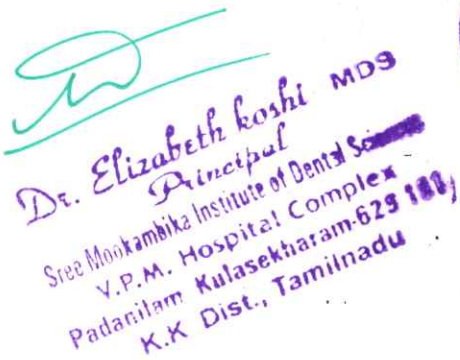 Dr. Elizabeth koshi MDS
Principal
Sree Mookambika Institute of Dental
V.P.M. Hospital Complex
Padanilam Kulasekharam-629
K.K Dist., Tamilnadu